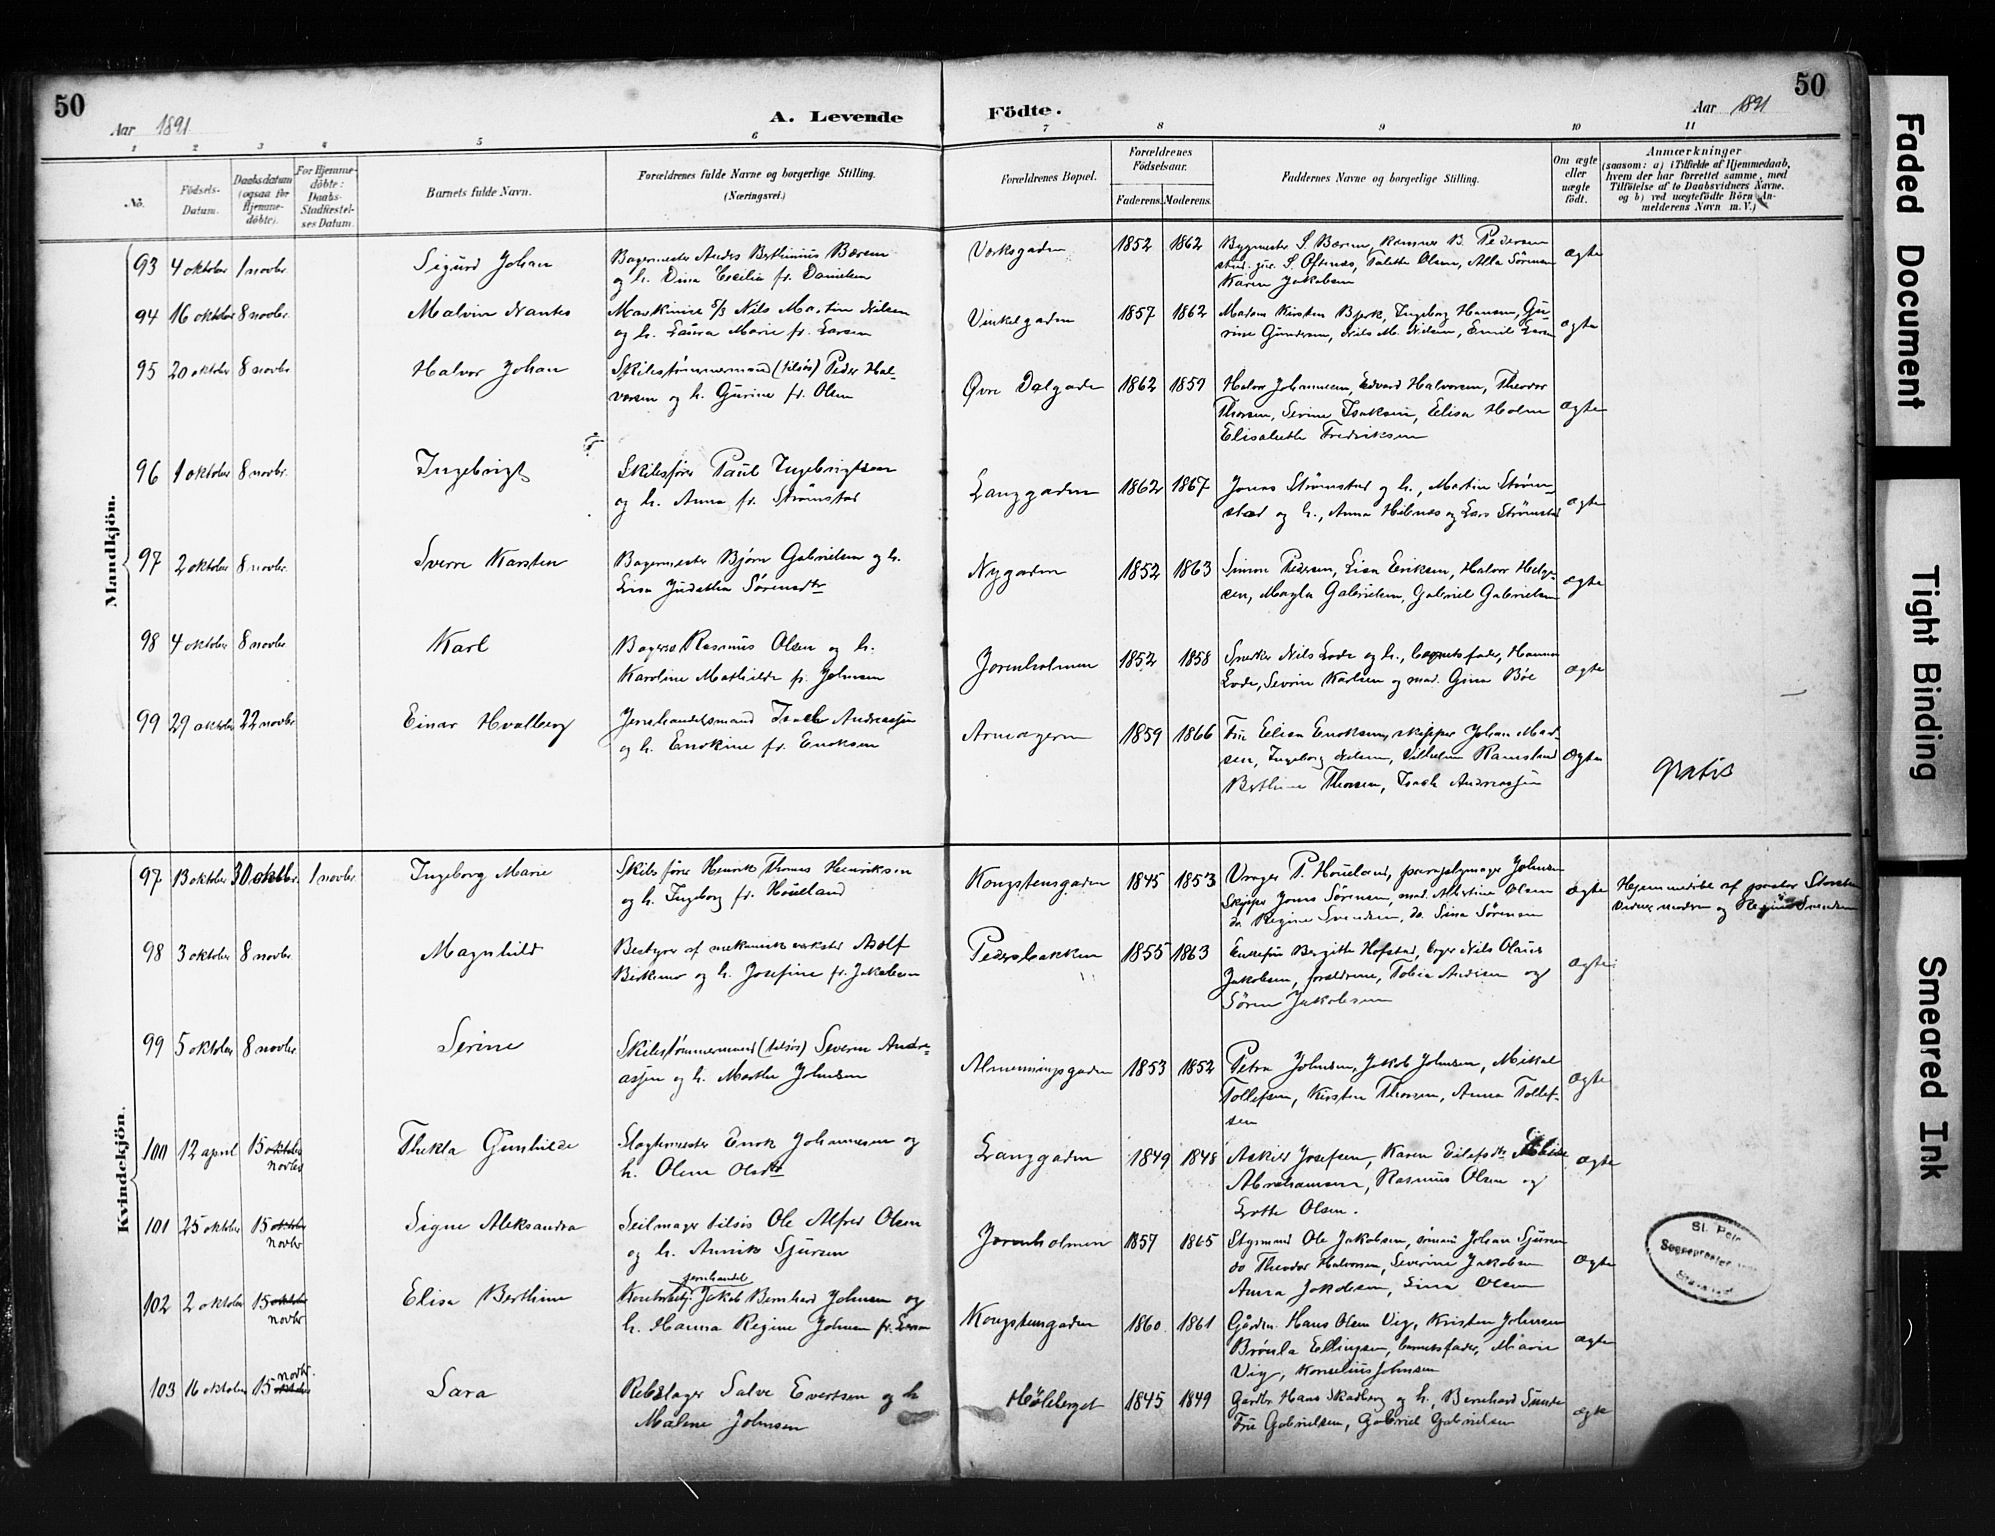 50
50
Aar 1891
A. Levende
Födte.
Aar 1891
1 2 3 4 5 6 7 8 9 10 11
No.
Födsels-
Datum.
Daabsdatum
(ogsaa for
Hjemme-
döbte).
For Hjemme-
döbte:
Daabs-
Stadfæstel-
ses Datum.
Barnets fulde Navn.
Forældrenes fulde Navne og borgerlige Stilling.
(Næringsvei.)
Forældrenes Bopæl.
Forældrenes
Födselsaar.
Faderens. Moderens.
Faddernes Navne og borgerlige Stilling.
Om ægte
eller
uægte
födt.
Anmærkninger
(saasom: a) i Tilfælde af Hjemmedaab,
hvem der har forrettet samme, med
Tilföielse af to Daabsvidners Navne.
og b) ved uægtefödte Börn An-
melderens Navn m. V.)
Mandkjön.
93 4 oktober 1 novbr. Sigurd Johan
Bagermester Anders Berthinius Bærem
og h. Dina Cecilia f. Danielsen
Værksgaden 1852 1862
Karen Jakobsen
ægte
94 16 oktober 8 novbr. Malvin Nantes
Maskinist Nils Martin Nilsen
og h. Laura Marie f. Larsen
Vinkelgaden 1857 1862
Madam Kirsten Bjerk, Ingeborg Hansen, Gu-
rine Gundersen, Nils M. Nilsen, Emil Larsen
ægte
95 20 oktober 8 novbr. Halvor Johan
Skibstømmermand (tilsøs) Peder Hal-
vorsen og h. Gurine f. Olsen
Øvre Dalgade 1862 1859
Halvor Johannesen, Edvard Halvorsen, Theodor
Thorsen, Serine Isaksen, Elisa Holm
Elisabeth Fredriksen
ægte
96 1 oktober 8 novbr. Ingebrigt
Skibsfører Paul Ingebrigtsen
og h. Anna f. Strømstad
Langgaden 1862 1867
Jonas Strømstad og h., Martin Strøm-
stad og h., Anna Hilnæs og Lars Strømstad
ægte
97 2 oktober 8 novbr. Sverre Karsten
Bagermester Bjørn Gabrielsen og h.
Lisa Judithea Sørensdtr
Nygaden 1852 1863
Simon Pedersen, Lisa Eriksen, Halvor Helge-
sen, Magla Gabrielsen, Gabriel Gabrielsen
ægte
98 4 oktober 8 novbr Karl
Bagersv Rasmus Olsen og h.
Karoline Mathilde f. Johnsen
Jorenholmen 1852 1858
Snedker Nils Lode og h., barnets fader, Hanna
Lode, Sevrin Karlsen og mad. Gina Böe
ægte
99 29 oktober 22 novbr. Einar Hvalberg
Jernhandelsmand Isach Andreassen
og h. Enokine f. Enoksen
Armageren 1859 1866
Fru Elisa Enoksen, skipper Johan Mad-
sen, Ingeborg Nilsen, Vilhelm Ramsland
Berthine Thorsen, Isach Andreassen
ægte
gratis
Kvindekjön.
97 13 oktober 30 oktbr. 1 novbr. Ingeborg Marie
Skibsfører Henrik Thomas Henriksen
og h. Ingeborg f. Houeland
Kongstensgaden 1845 1853
Vrager P. Houeland, paraplymager Johnsen
Skipper Jonas Sørensen, mad. Albertine Olsen
do Regine Svendsen, do. Sina Sørensen
ægte
Hjemmedøbt af pastor Storsten
Vidner moderen og Regine Svendsen
98 3 oktober 8 novbr. Magnhild
Bestyrer af mekanisk verksted Adolf
Birkmo og h. Josefine f. Jakobsen
Pedersbakken 1855 1863
Enkefru Bergitte Hofstad, bager Nils Olaus
Jakobsen, forældrene, Tobia Andisen og
Sören Jakobsen
ægte
99 5 oktober 8 novbr Serine
Skibstømmermand (tilsøs) Severin Andre-
assen og h. Marthe Johnsen
Almenningsgaden 1853 1852
Petra Johnsen, Jakob Johnsen, Mikal
Tollefsen, Kirsten Thorsen, Anna Tollef-
sen
ægte
100 12 april 15 oktober
novbr Thekla Gunhilde
Slagtermester Enok Johannesen og
h. Olene Olsdtr
Langgaden 1849 1848
Askild Josefsen, Karen Eilefsdtr
Abrahamsen, Rasmus Olsen og
Lotte Olsen.
ægte
101 25 oktober 15 oktober
novbr Signe Aleksandra
Seilmager tilsøs Ole Alfred Olsen
og h. Annike Sjursen
Jorenholmen 1857 1865
Styrmand Ole Jakobsen, sömand Johan Sjursen
do Theodor Halvorsen, Severine Jakobsen
Anna Jakobsen, Lina Olsen
ægte
102 2 oktober 15 oktober
novbr Elisa Berthine
jernhandel
Kontorbetj. Jakob Bernhard Johnsen og
h. Hanna Regine Johnsen f. Larsen
Kongstensgaden 1860. 1861
Gårdbr. Hans Olsen Vig, Kristen Johnsen
Brönla Ellingsen, barnets fader, Marie
Vig, Konselius Johnsen
ægte
103 16 oktober 15 oktober
novbr. Sara
Rebslager Salve Evertsen og h
Malene Johnsen
Höleberget 1845 1849
Gårdbr. Hans Skadberg og h, Bernhard Sunde
Fru Gabrielsen, Gabriel Gabrielsen
ægte
St. Petri
Sogneprest
Stavanger
Faded Document
Tight Binding
Smeared Ink